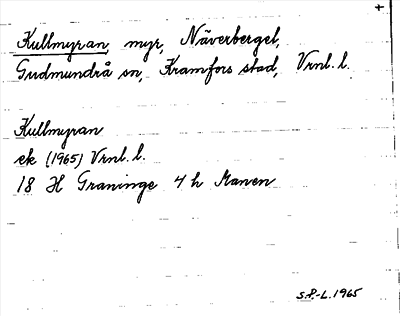 +
Kullmyran, myr, Näverberget,
Gudmundrå sn, Kramfors stad, Vrnl. l.
Kullmyran
ek (1965) Vrnl. l.
18 H Graninge 4 h
S.P.-L. 1965